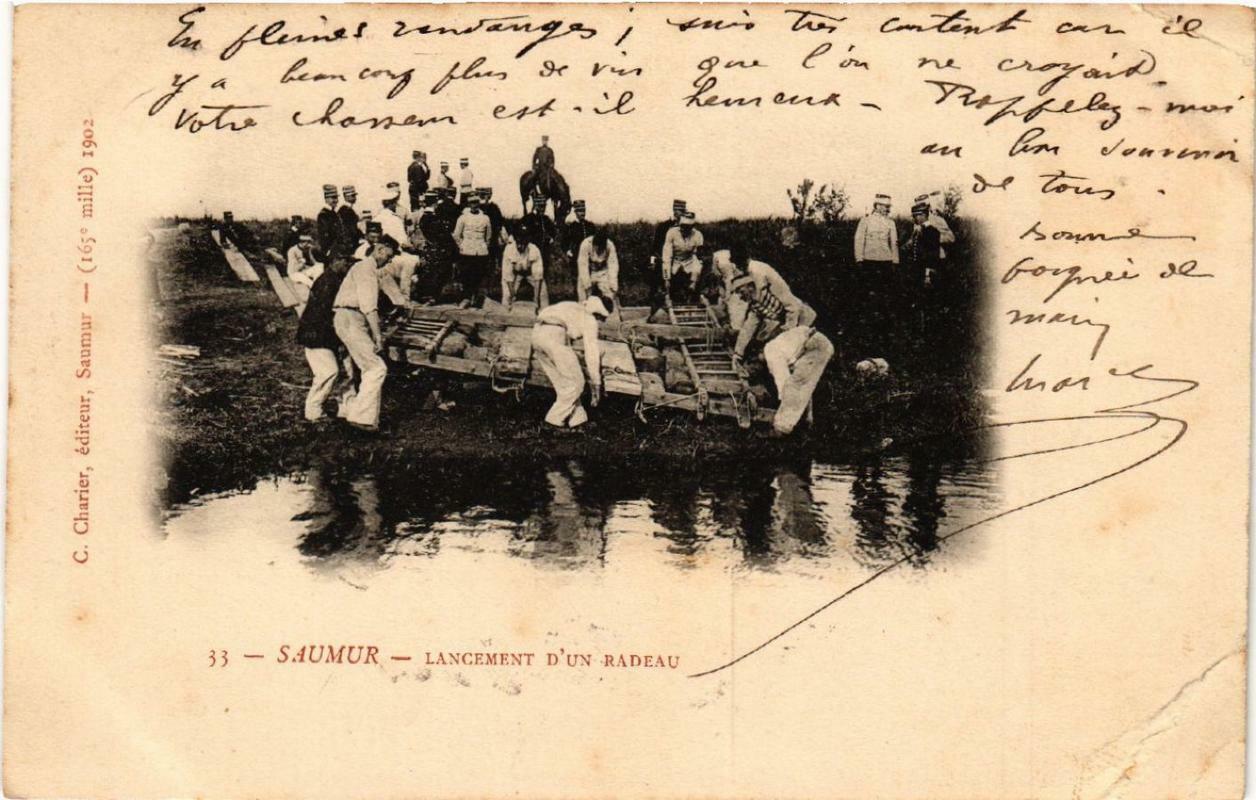 En pleines vendanges, suis très content car il
y a beaucoup plus de vin que l'on ne croyait.
Votre chasseur est-il heureux - Rappelez-moi
au bon souvenir
de tous.
Bonne
poignée de
main
Marcel
C. Charier, éditeur, Saumur — (165e mille) 1902
33 — SAUMUR — LANCEMENT D'UN RADEAU